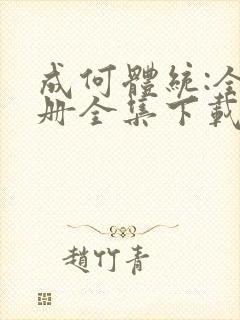 成何體統:全
册全集下載
趙竹青